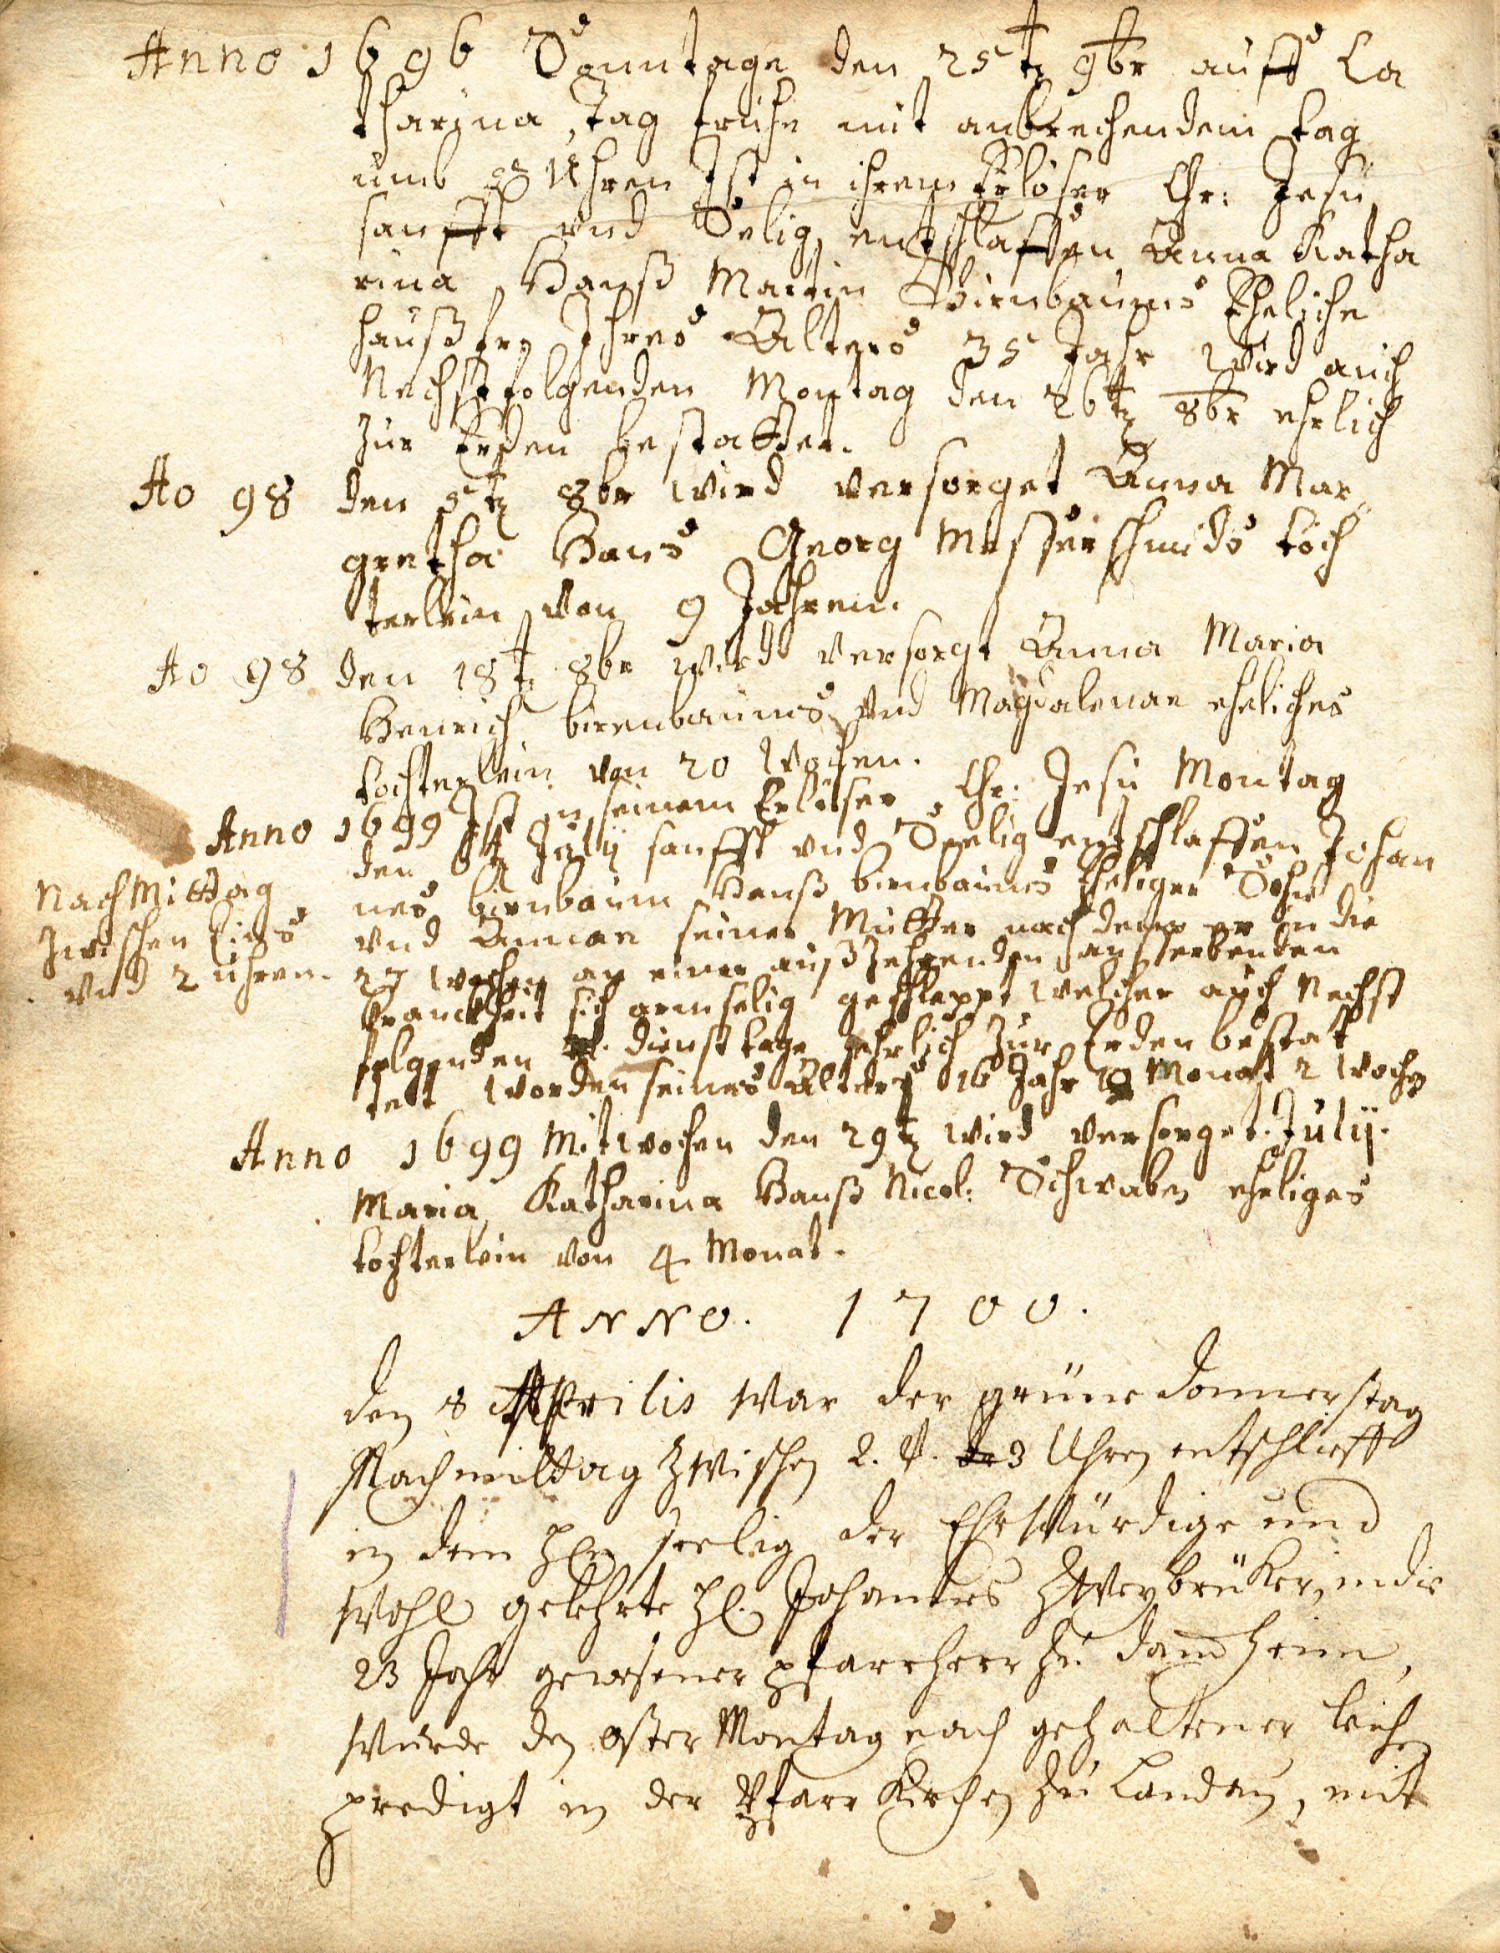 Anno 1696 Sonntage den 25t 9br auff Ca
tharina Tag frühe mit anbrechendem tag
umb 8 Uhren Ist in ihrem Erlöser Chr: Jesu
sanfft vnd Selig entschlaffen Anna Katha
rina Hanß Martin Birnbaums Eheliche
haußfr, Ihres Alters 35 Jahr wird auch
Nechstfolgenden Montag den 26t ehrlich
Zur Erden bestattet.
Ao 98 den 5t 8br wird versorget Anna Mar
gretha Hans Georg Messerschmids töch
terlein von 9 Jahren.
Ao 98 den 18t 8br wird versorgt Anna Maria
Henrich birenbaumes vnd Magdalenae eheliches
tochterlein von 20 Wochen.
Anno 1699 Ist in seinem Erlöser Chr: Jesu Montag
den 6t Julij sanfft vnd Seelig entschlaffen Johan
Nach Mittag
Zwischen Eins
vnd 2 uhren.
nes birnbaum Hanß birnbaumes Eheliger Sohn
vnd Annae seiner Mutter nach dem er in die
27 wochen an einer außzehrenden
kranckheit sich armselig geschleppt welcher auch Nechst
folgenden diensttage ehrlich Zur Erden bestat
tet worden seines Alters 16 Jahr 10 Monat 2 Wochen
Anno 1699 Mitwochen den 29t wird versorget Julij.
Maria Katharina Hanß Nicol: Schwaben eheliges
tochterlein von 4 Monat.
ANNO. 1700.
den 8 Aprilis war der grüne donnerstag
Nachmittag zwischen 2. u. 3 Uhren entschlieff
in dem Hln seelig der Ehrwürdige und
Wohl gelehrte Hl. Johannes Zweybrüker, in die
23 Jahr gewesener pfarrherr zu damheim,
wurde den oster Montag nach gehaltener leich
predigt in der Pfarr Kirchen zu Landau, mit